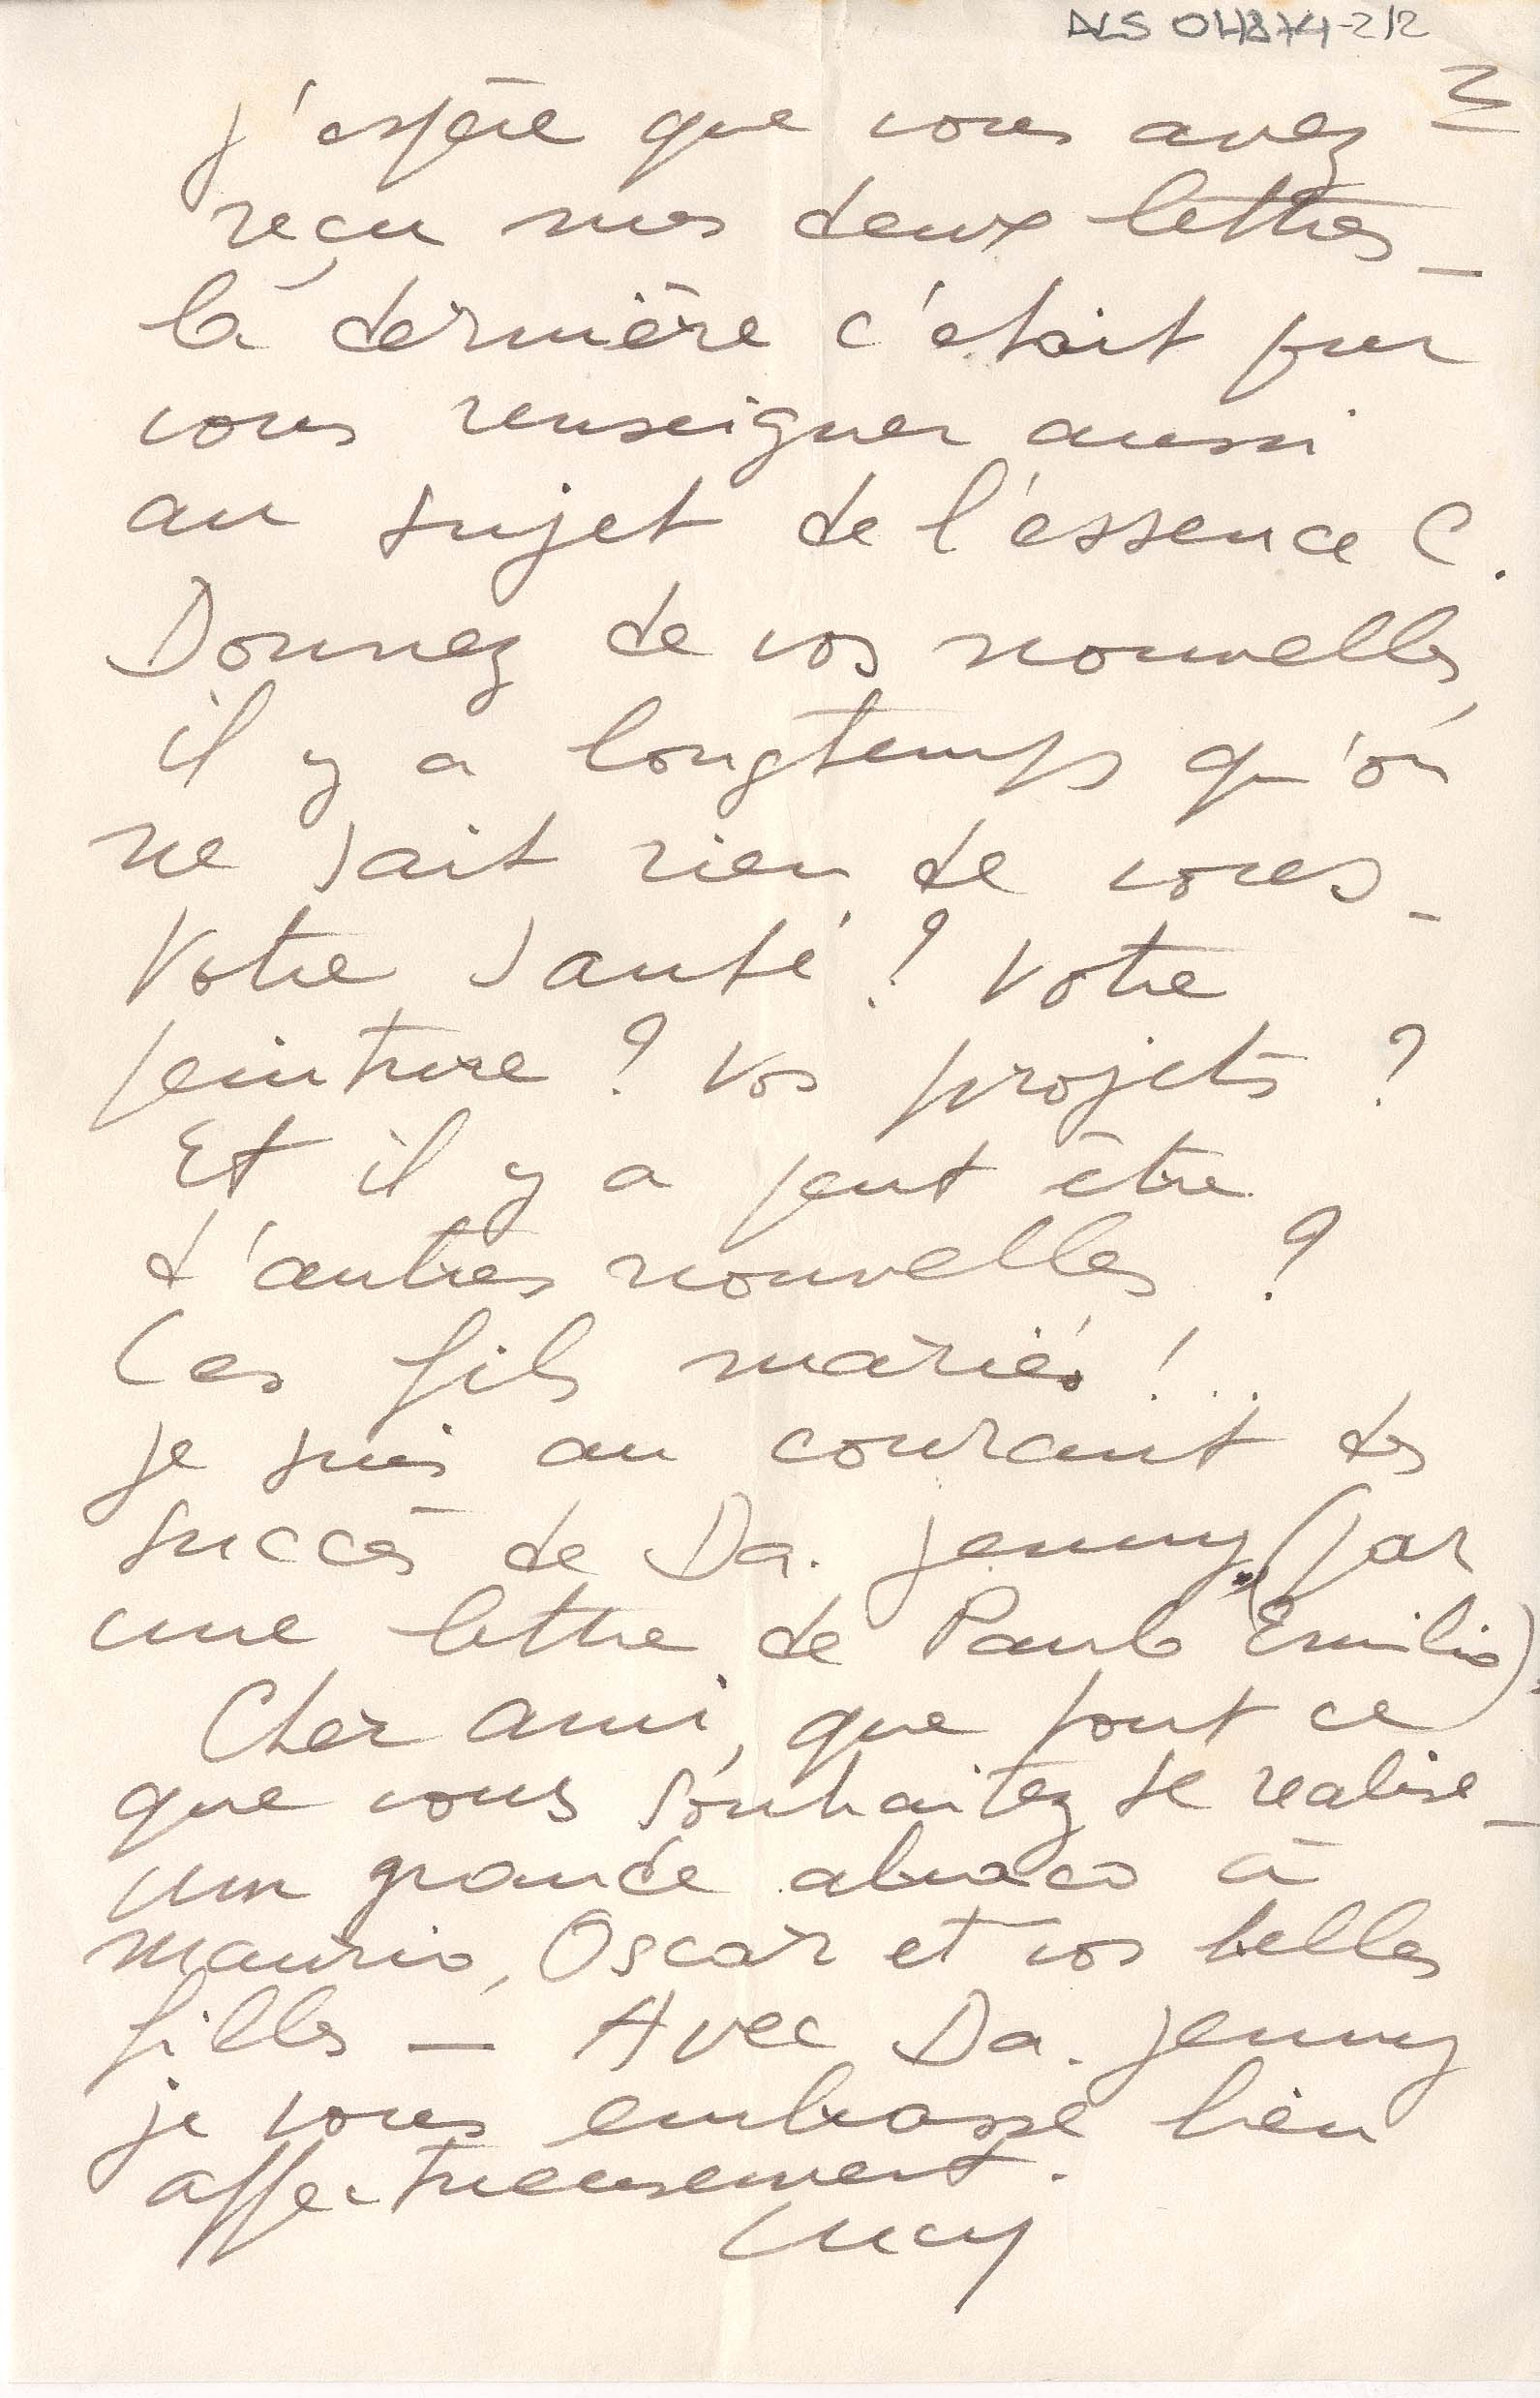 ALS 04874-2/2
3
j'espère que vous avez
reçu mes deux lettres _
la dernière c'était pour
vous renseigner aussi
au sujet de l'éssence C.
Donnez de vos nouvelles,
il y a longtemps qu'on
ne sait rien de vous _
Votre santé ? Votre
peinture ? Vos projets ?
Et il y a peut être
d'autres nouvelles ?
Les fils mariés ! ..
je suis au courant des
succès de Da. Jenny (par
une lettre de Paulo Emilio).
Cher ami, que tout ce
que vous souhaitez se realise _
um grande abraço à
Maurio, Oscar et vos belles
filles — Avec Da. Jenny
je vous embrasse bien
affectueusement.
Lucy